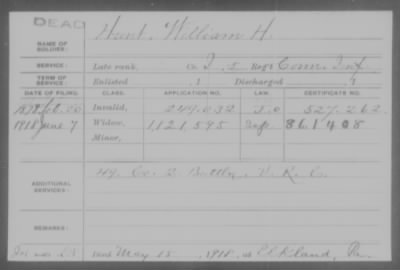 DEAD
NAME OF SOLDIER: Hunt, William H.
SERVICE: Late rank, Co. I, 5 Reg't Conn. Inf.
TERM OF SERVICE: Enlisted , 1 Discharged , 1
DATE OF FILING. CLASS. APPLICATION NO. LAW. CERTIFICATE NO.
Feb. Invalid, 249.032 527.262
1918 June 7 Widow, 1,121,595 861408
Minor,
ADDITIONAL SERVICES: 49, Co. 2 Battln, V. R. C.
REMARKS:
died May 15, 1918, at Elkland, Pa.